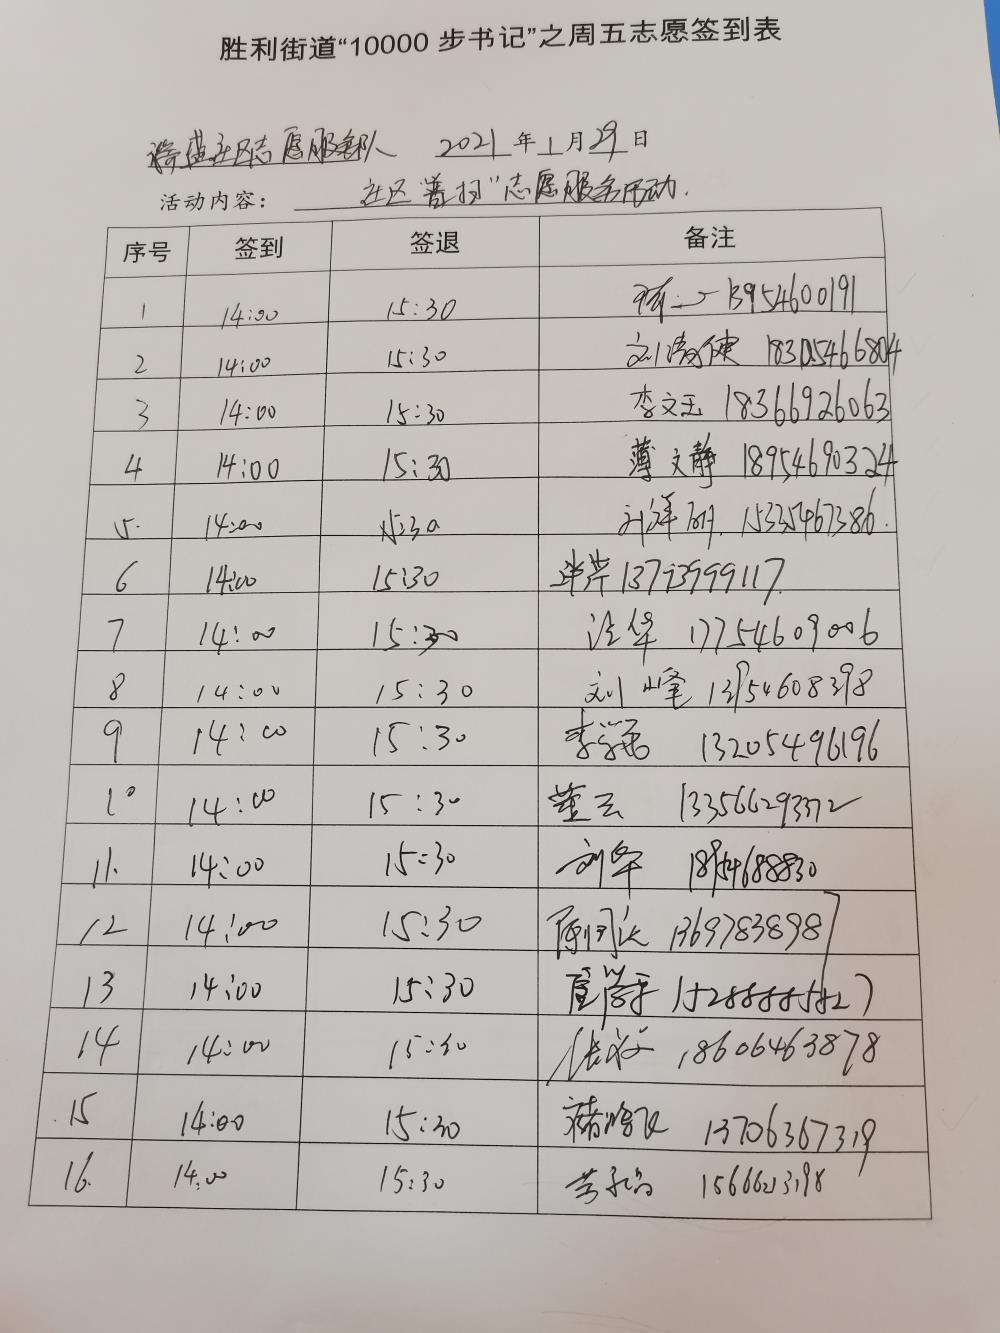 胜利街道“10000 步书记”之周五志愿签到表
社区志愿服务队 2021 年 1 月 29 日
活动内容： 社区“普扫”志愿服务活动.
序号 签到 签退 备注
1 14:00 15:30 13954600191
2 14:00 15:30 18305466804
3 14:00 15:30 李文玉 18366926063
4 14:00 15:30 薄文静 18954690324
5. 14:00 15:30 15335467386.
6 14:00 15:30 13793999117
7 14:00 15:30 17754609006
8 14:00 15:30 刘峰 13954608398
9 14:00 15:30 13205496196
10 14:00 15:30 董云 13356629372
11. 14:00 15:30 刘军 18954688830
12 14:00 15:30
13 14:00 15:30
14 14:00 15:30 18606463878
15 14:00 15:30 13706367319
16. 14:00 15:30